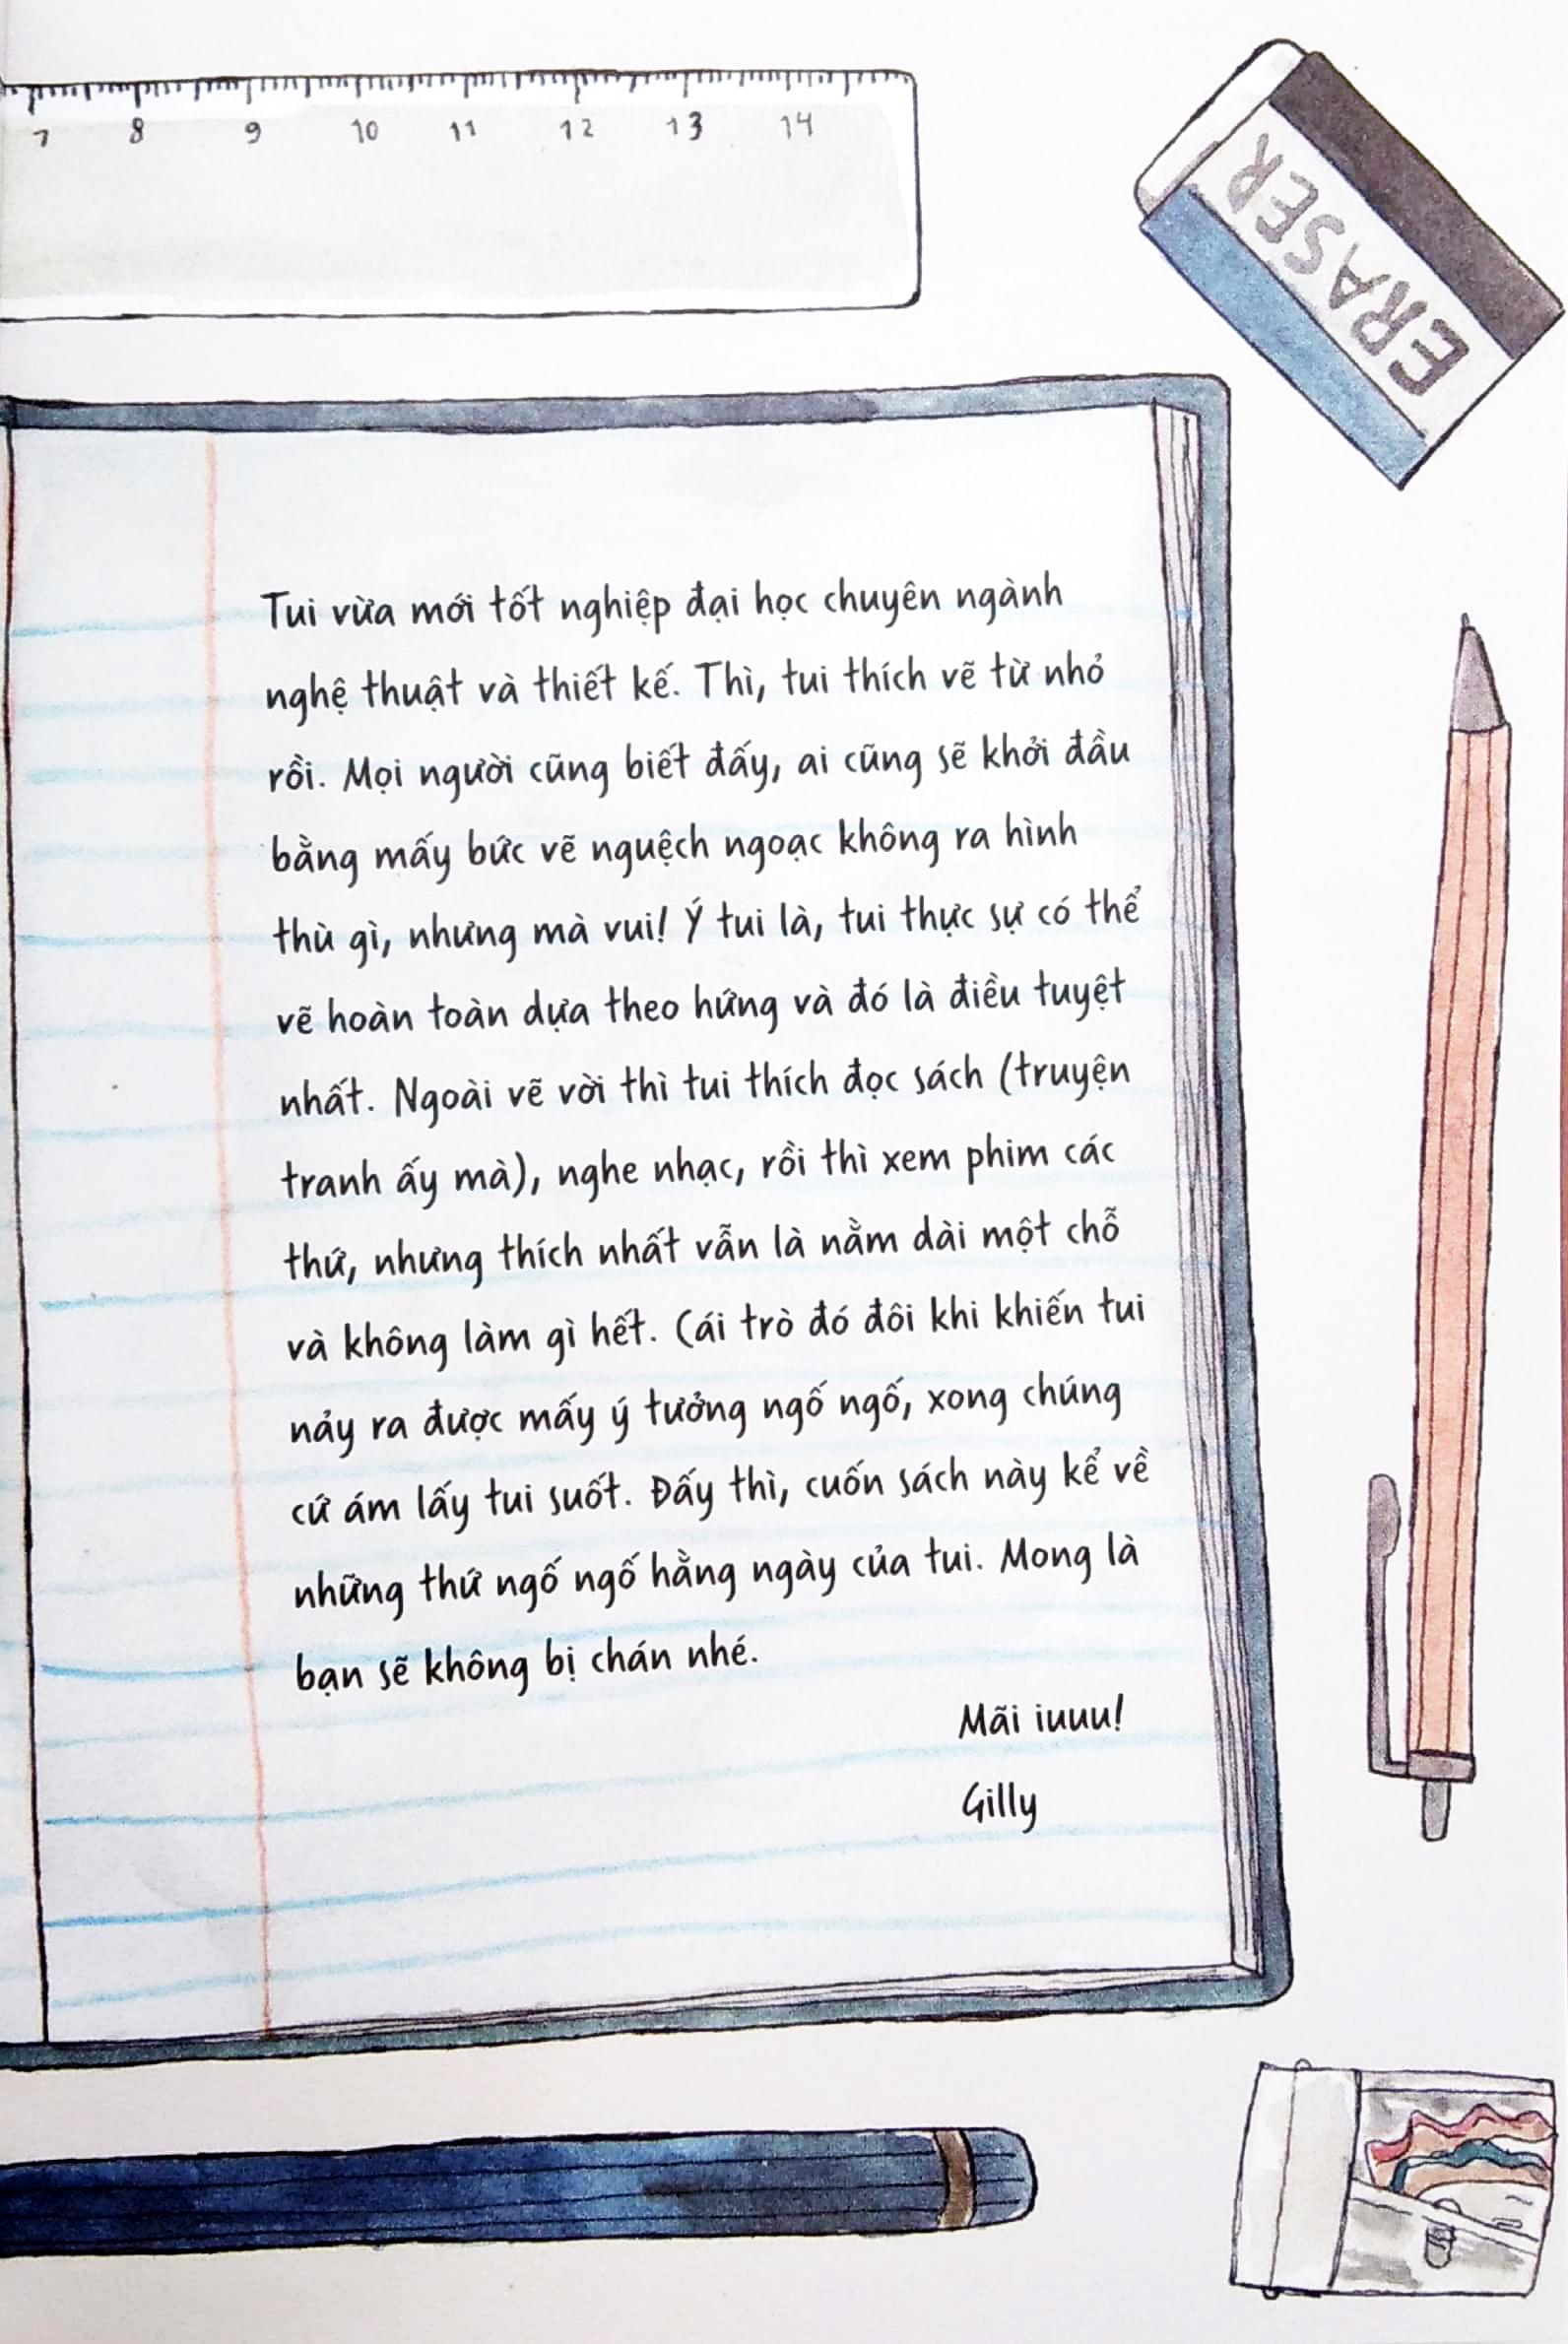 7 8 9 10 11 12 13 14
ERASER
Tui vừa mới tốt nghiệp đại học chuyên ngành
nghệ thuật và thiết kế. Thì, tui thích vẽ từ nhỏ
rồi. Mọi người cũng biết đấy, ai cũng sẽ khởi đầu
bằng mấy bức vẽ nguệch ngoạc không ra hình
thù gì, nhưng mà vui! Ý tui là, tui thực sự có thể
vẽ hoàn toàn dựa theo hứng và đó là điều tuyệt
nhất. Ngoài vẽ vời thì tui thích đọc sách (truyện
tranh ấy mà), nghe nhạc, rồi thì xem phim các
thứ, nhưng thích nhất vẫn là nằm dài một chỗ
và không làm gì hết. Cái trò đó đôi khi khiến tui
nảy ra được mấy ý tưởng ngố ngố, xong chúng
cứ ám lấy tui suốt. Đấy thì, cuốn sách này kể về
những thứ ngố ngố hằng ngày của tui. Mong là
bạn sẽ không bị chán nhé.
Mãi iuuu!
Gilly